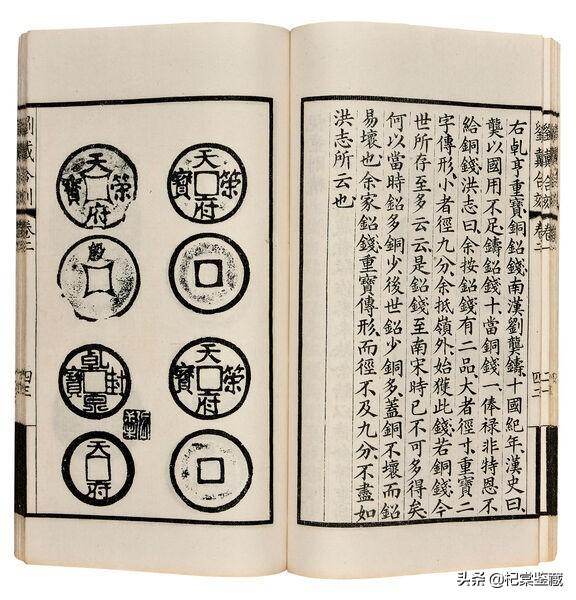 劉戴合刻
卷二
四二
右乹亨重寶、銅鉛錢、南漢劉龑鑄、十國紀年、漢史曰、
龑以國用不足、鑄鉛錢十、當銅錢一、俸祿非特恩不
給銅錢、洪志曰、余按鉛錢有二品、大者徑寸、重寶二
字傳形、小者徑九分、余抵嶺外、始獲此錢、若銅錢、今
世所存至多云云、是鉛錢至南宋時已不可多得矣、
何以當時鉛多銅少、後世鉛少銅多、蓋銅不壞而鉛
易壞也、余家鉛錢、重寶傳形、而徑不及九分、不盡如
洪志所云也
天策府寶
天策府寶
天策府寶
殷
乹封泉寶
天府
卷二
四三
头条 @杞棠鉴藏